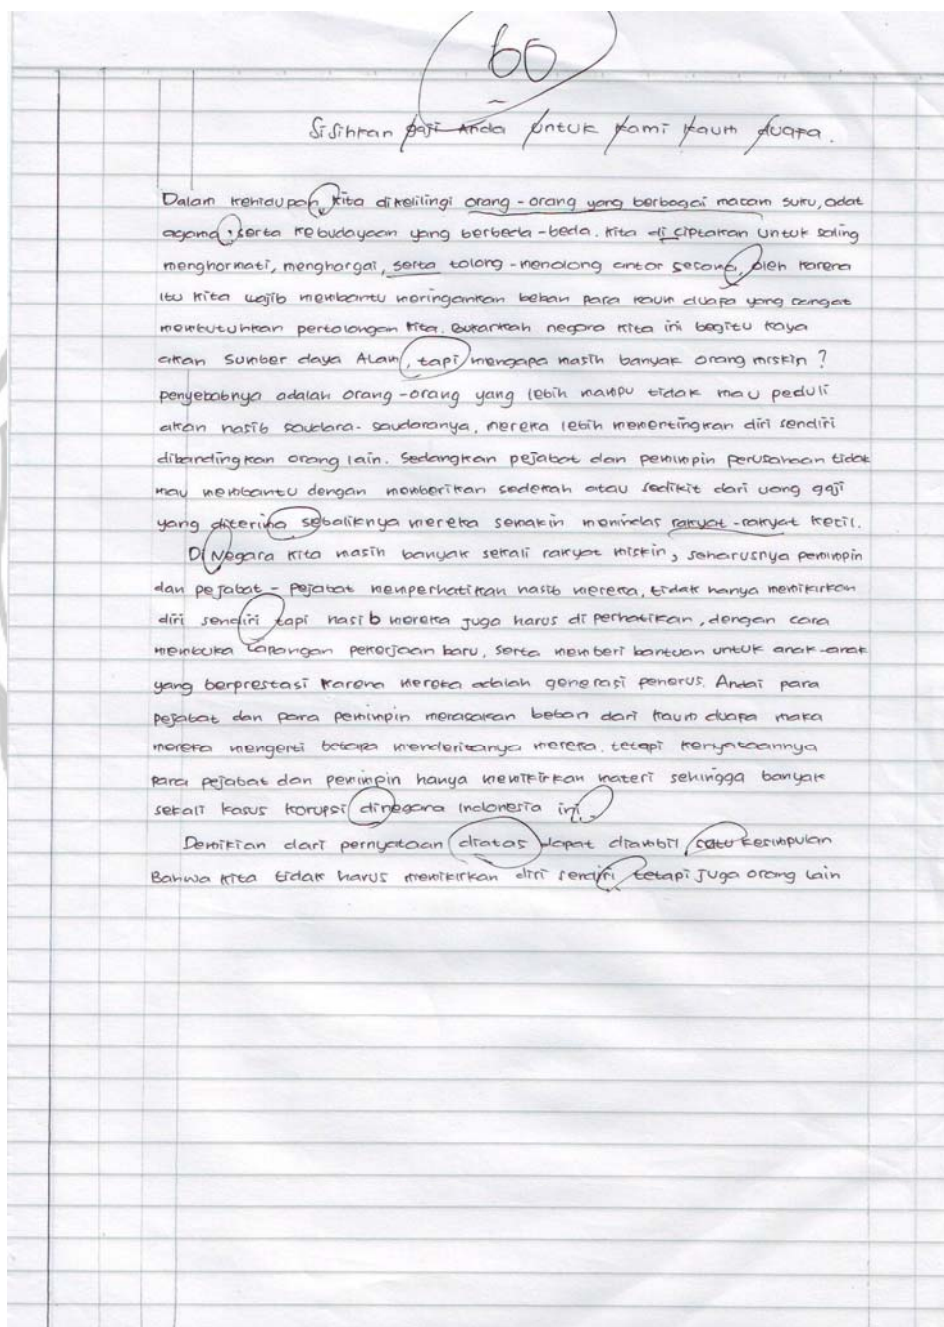 60
Sisihkan gaji Anda untuk kami kaum duafa.
Dalam kehidupan kita dikelilingi orang-orang yang berbagai macam suku, adat
agama, serta kebudayaan yang berbeda-beda. Kita di ciptakan untuk saling
menghormati, menghargai, serta tolong-menolong antar sesama, oleh karena
itu kita wajib membantu meringankan beban para kaum duafa yang sangat
membutuhkan pertolongan kita. Bukankah negara kita ini begitu kaya
akan Sumber daya Alam, tapi mengapa masih banyak orang miskin ?
penyebabnya adalah orang-orang yang lebih mampu tidak mau peduli
akan nasib saudara-saudaranya, mereka lebih mementingkan diri sendiri
dibandingkan orang lain. Sedangkan pejabat dan pemimpin perusahaan tidak
mau membantu dengan memberikan sedekah atau sedikit dari uang gaji
yang diterima sebaliknya mereka semakin menindas rakyat-rakyat kecil.
Di Negara kita masih banyak sekali rakyat miskin, seharusnya pemimpin
dan pejabat-pejabat memperhatikan nasib mereka, tidak hanya memikirkan
diri sendiri tapi nasib mereka juga harus di perhatikan, dengan cara
membuka lapangan pekerjaan baru, serta memberi bantuan untuk anak-anak
yang berprestasi karena mereka adalah generasi penerus. Andai para
pejabat dan para pemimpin merasakan beban dari kaum duafa maka
mereka mengerti betapa menderitanya mereka. tetapi kenyataannya
para pejabat dan pemimpin hanya memikirkan materi sehingga banyak
sekali kasus korupsi dinegara Indonesia ini
Demikian dari pernyataan diatas dapat diambil satu kesimpulan
Bahwa kita tidak harus memikirkan diri sendiri tetapi juga orang lain